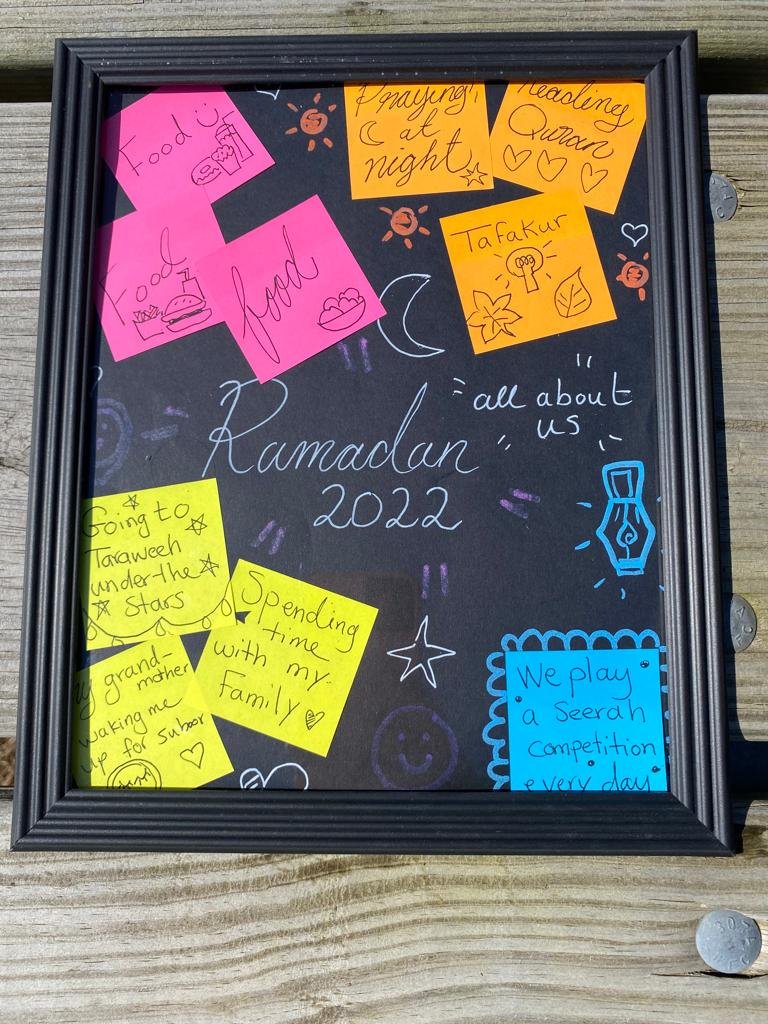 Food
Praying
at
night
Reading
Quran
Food
food
Tafakur
Ramadan
2022
"all about
us"
Going to
Taraweeh
under the
Stars
Spending
time
with my
Family
My grand-
mother
waking me
up for Suhoor
We play
a Seerah
competition
every day